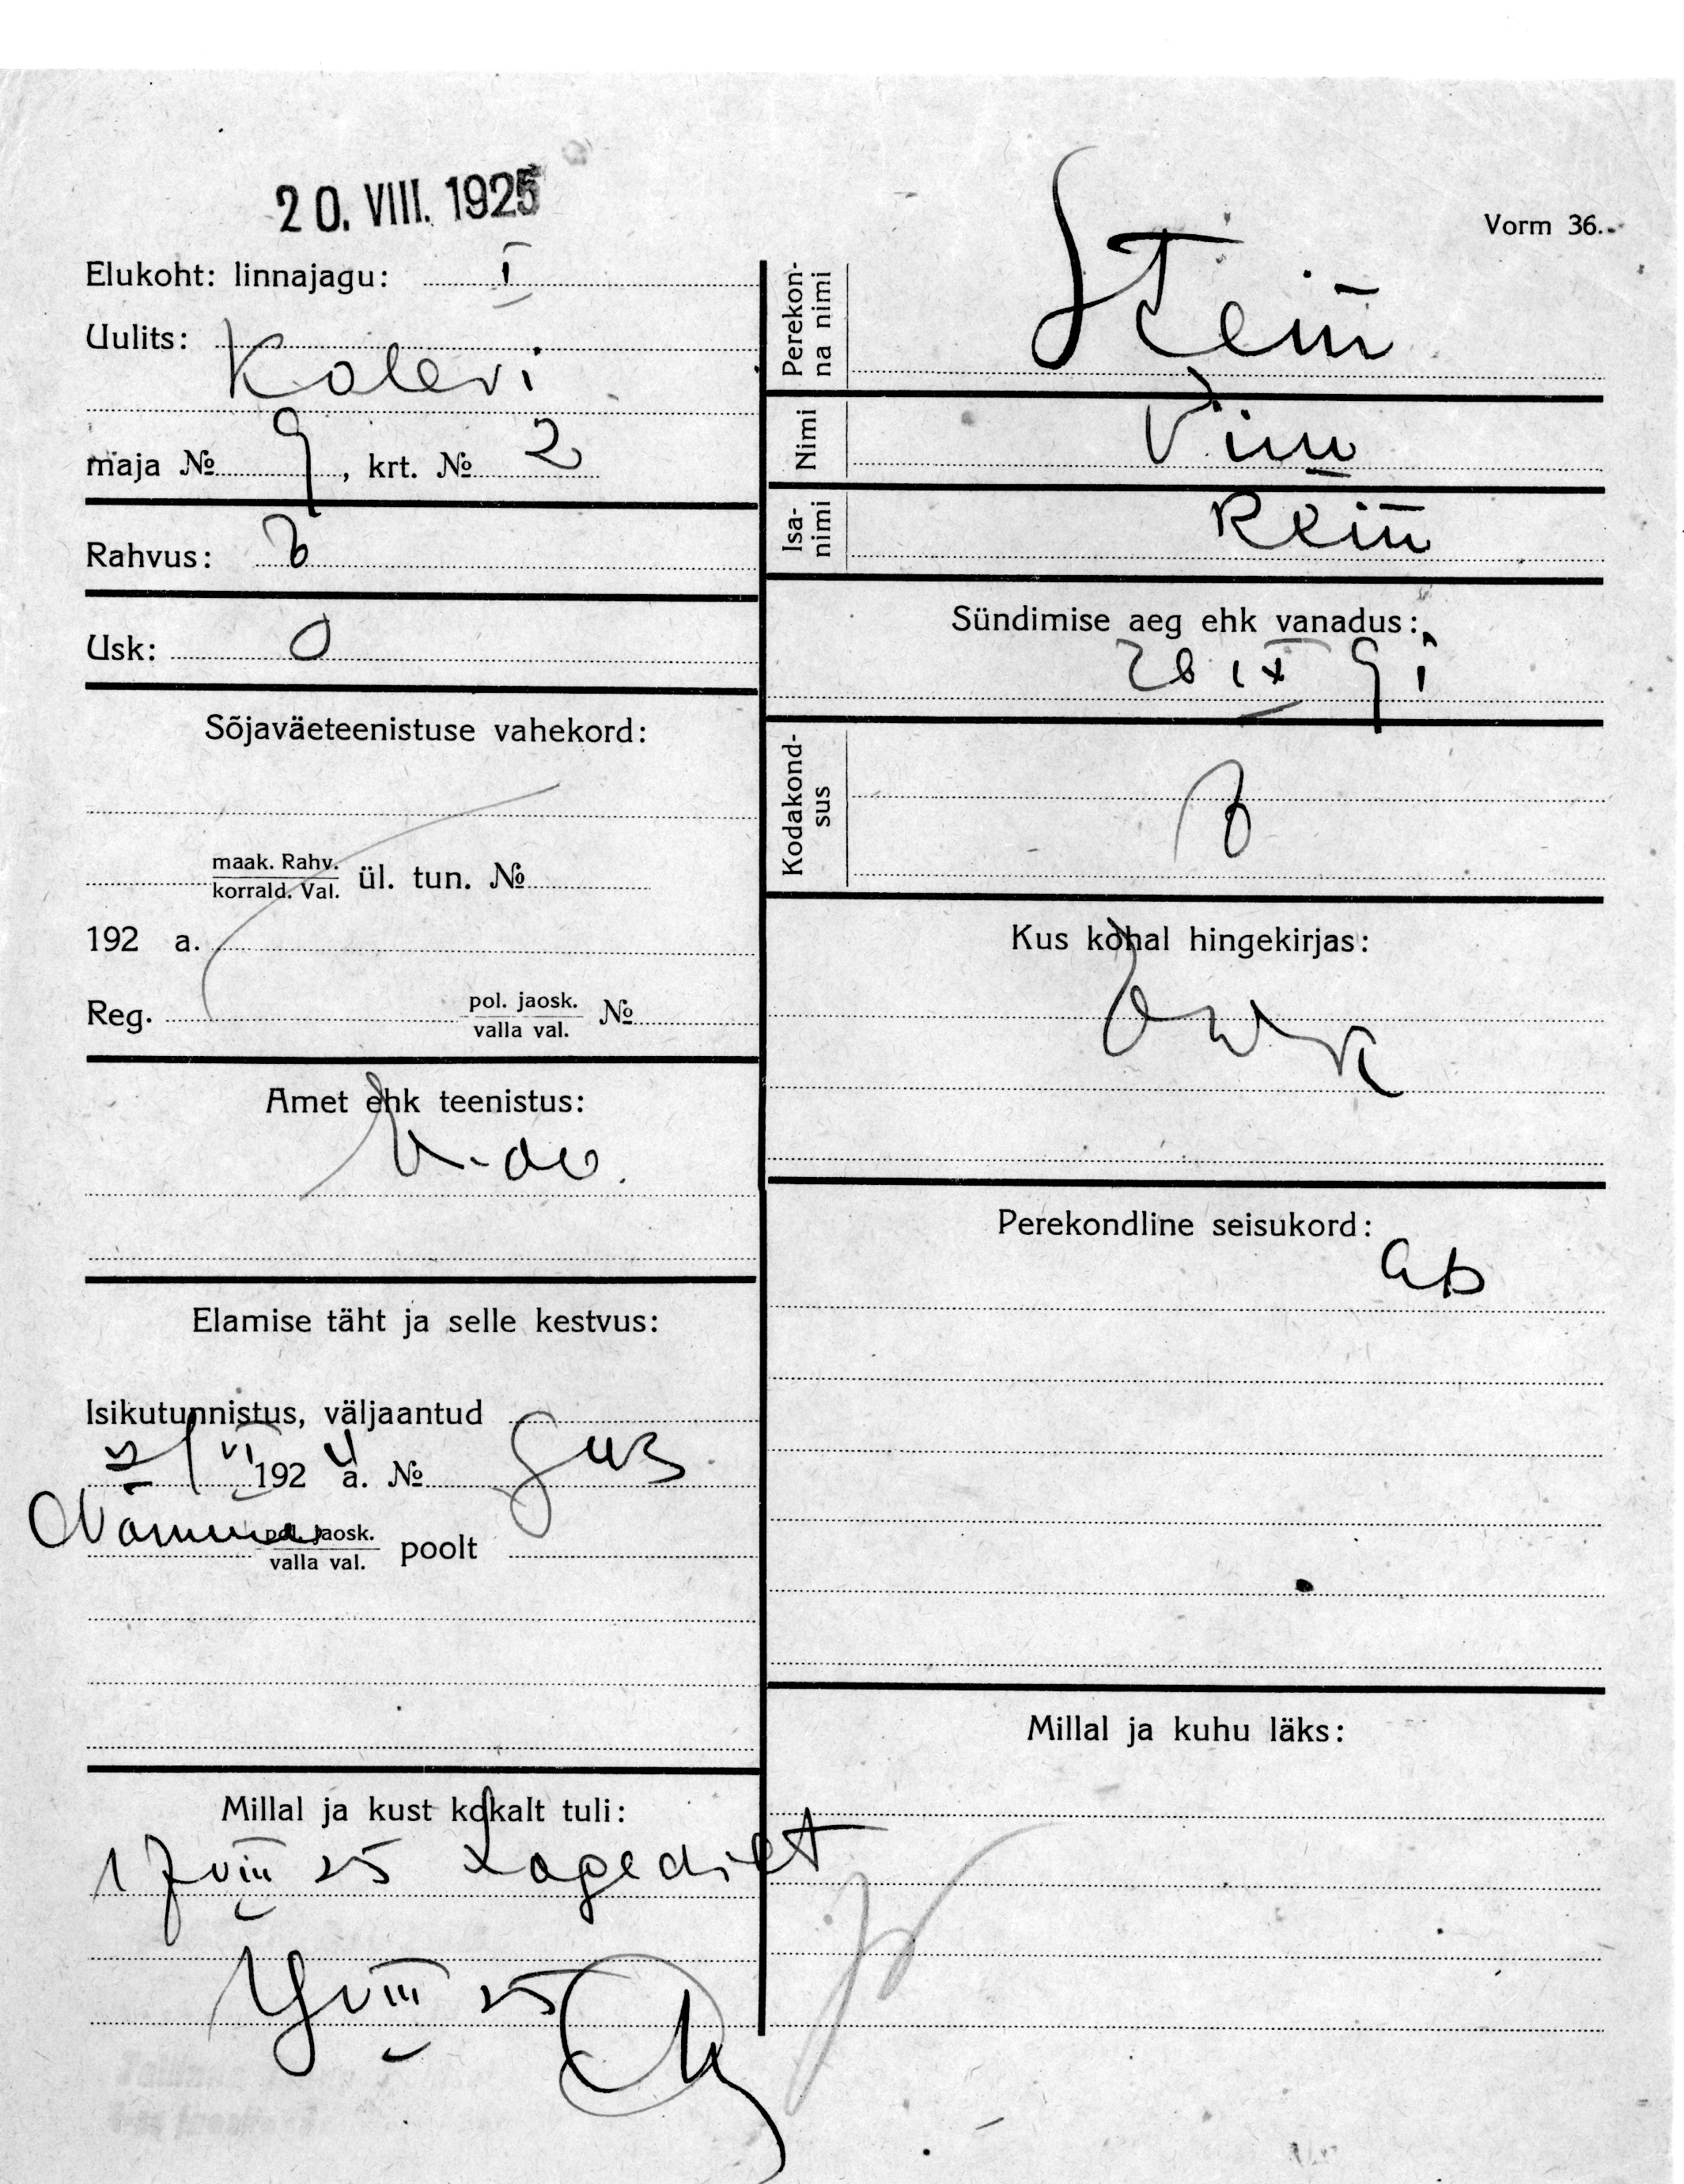 20. VIII. 1925
Vorm 36.
Elukoht: linnajagu: I
Uulits:
Kalevi
maja № 9, krt. № 2
Rahvus:
Usk: O
Sõjaväeteenistuse vahekord:
maak. Rahv.
korrald. Val.
ül. tun. №
192 a.
Reg.
pol. jaosk.
valla val.
№
Amet ehk teenistus:
Elamise täht ja selle kestvus:
Isikutunnistus, väljaantud
VI 192 4 a. №
Nõmme
pol. jaosk.
valla val.
poolt
Millal ja kust kohalt tuli:
17 VIII 25 Lagedilt
VIII 25
Perekonna nimi
Stein
Nimi
Isanimi
Rein
Sündimise aeg ehk vanadus:
28 IX 91
Kodakondsus
Kus kohal hingekirjas:
Perekondline seisukord:
ab
Millal ja kuhu läks: